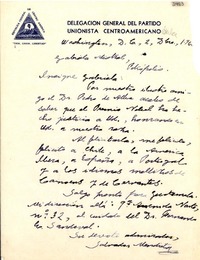 DELEGACION GENERAL DEL PARTIDO
UNIONISTA CENTROAMERICANO
Washington, D.C., 2, Dbre, 1.96
Gabriela Mistral,
Petrópolis
Insigne Gabriela:
Por nuestro ilustre amigo
el Dr. Pedro de Alba acabo de
saber que el Premio Nobel ha hecho
justicia a Ud., honrándose
Ud. a nuestra raza.
Al felicitarla, me felicito,
felicito a Chile, a la América
Ibera, a España, a Portugal
y a los idiomas melodiosos de
Camoens y de Cervantes.
Salgo pronto para Guatemala.
Mi dirección allá: 9ª Avenida Norte,
nº 32, al cuidado del Dr. Fernando
E. Sandoval.
Su devoto admirador,
Salvador Mendieta